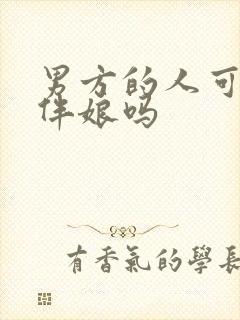 男方的人可
伴娘吗
有香氣的學長